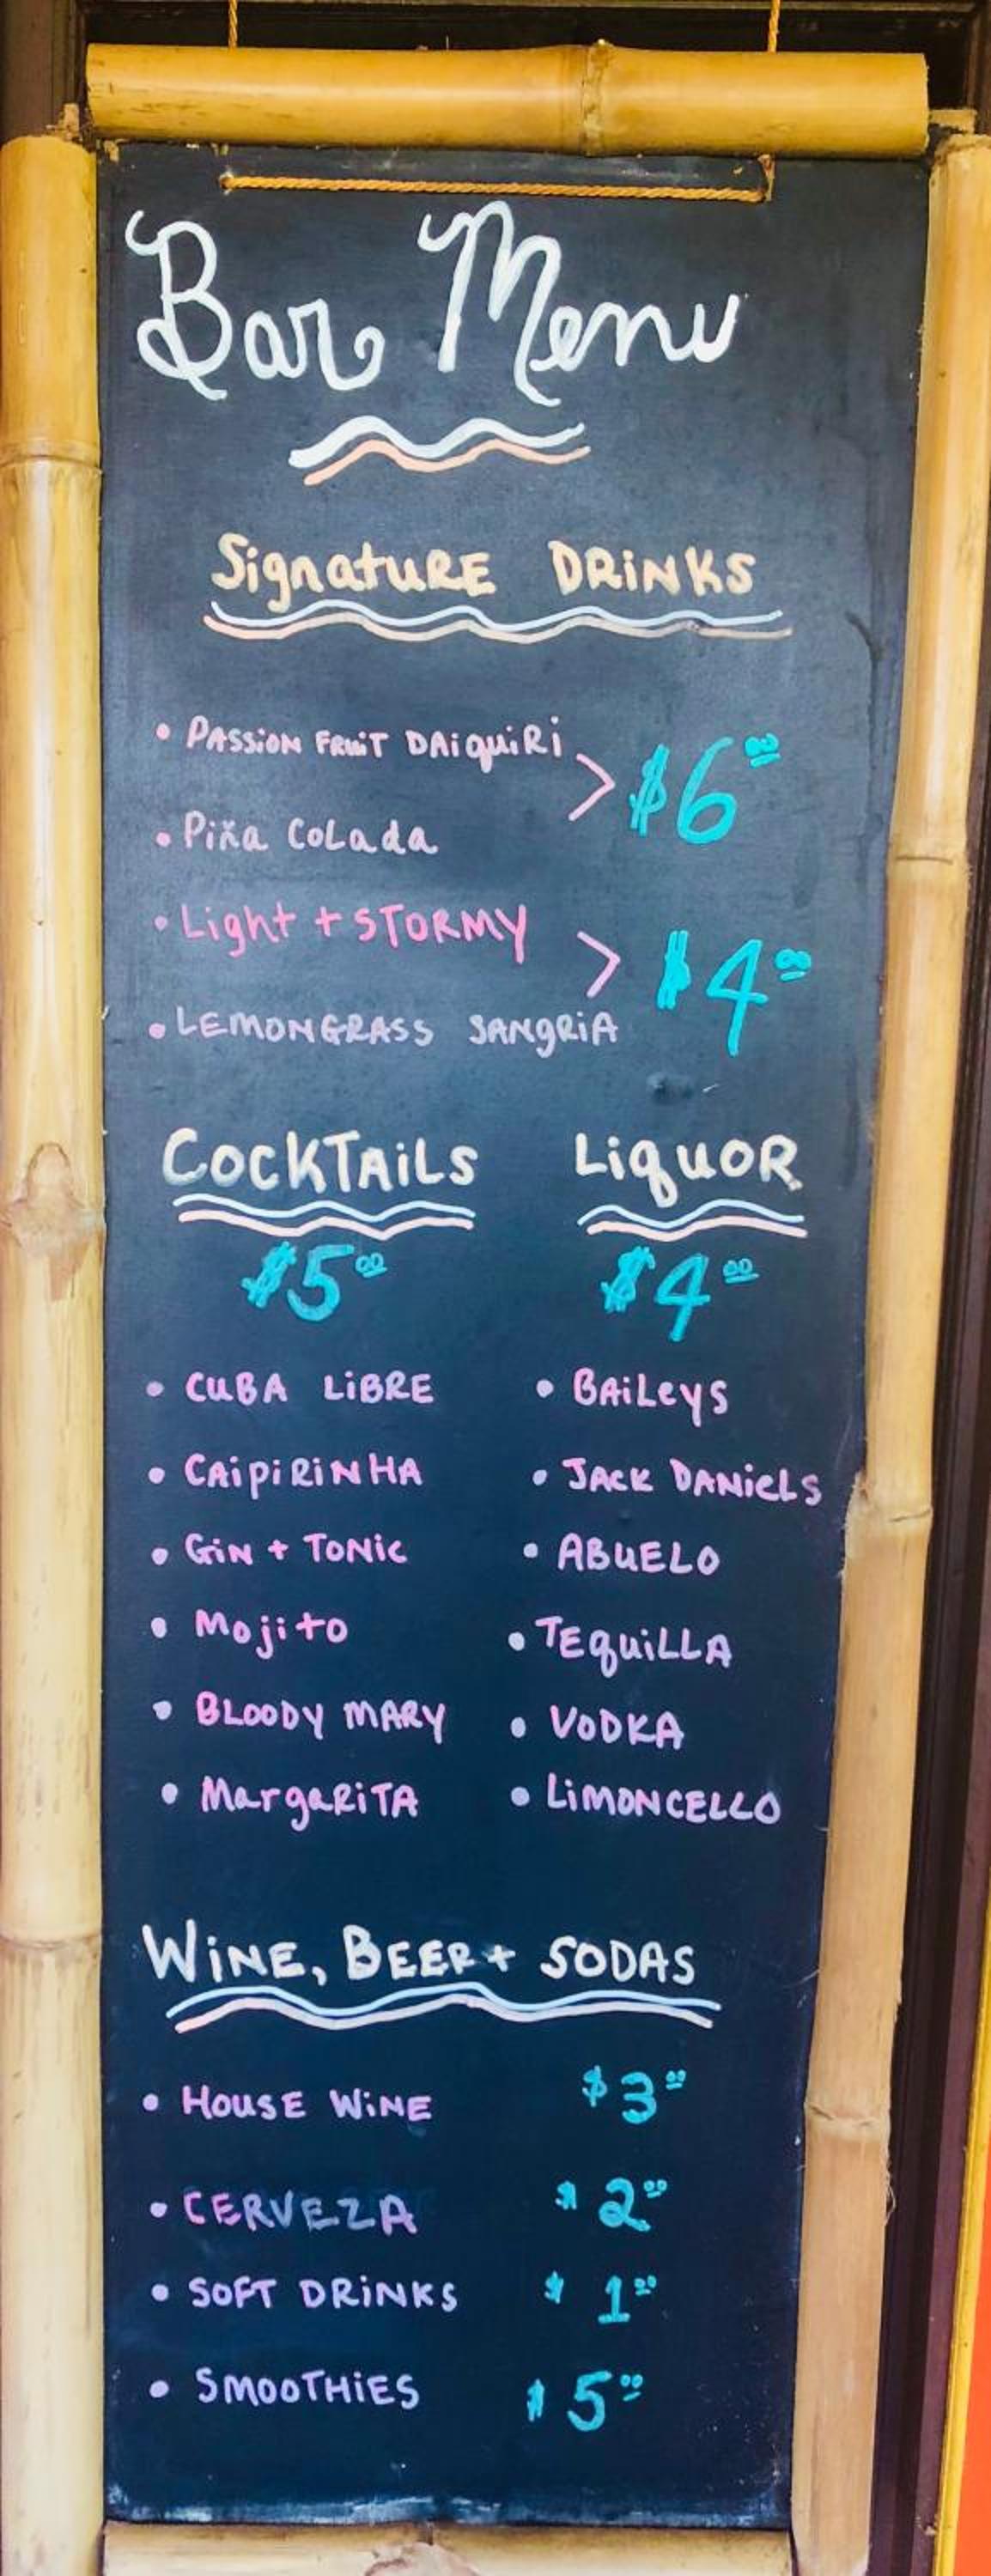 Bar Menu
Signature DRiNKS
• PASSiON FRUiT DAiquiRi
> $6.00
• Piña Colada
• Light + STORMY
> $4.00
• LEMONGRASS SANgRiA
COCKTAiLS
$5.00
• CUBA LiBRE
• CAipiRiNHA
• GiN + TONiC
• Mojito
• BLOODY MARY
• MargaRiTA
LiquOR
$4.00
• BAiLeyS
• JACK DANiELS
• ABUELO
• TEquiLLA
• VODKA
• LiMONCELLO
WiNE, BEER + SODAS
• HOUSE WiNE $3.00
• CERVEZA $2.00
• SOFT DRiNKS $1.00
• SMOOTHiES $5.00